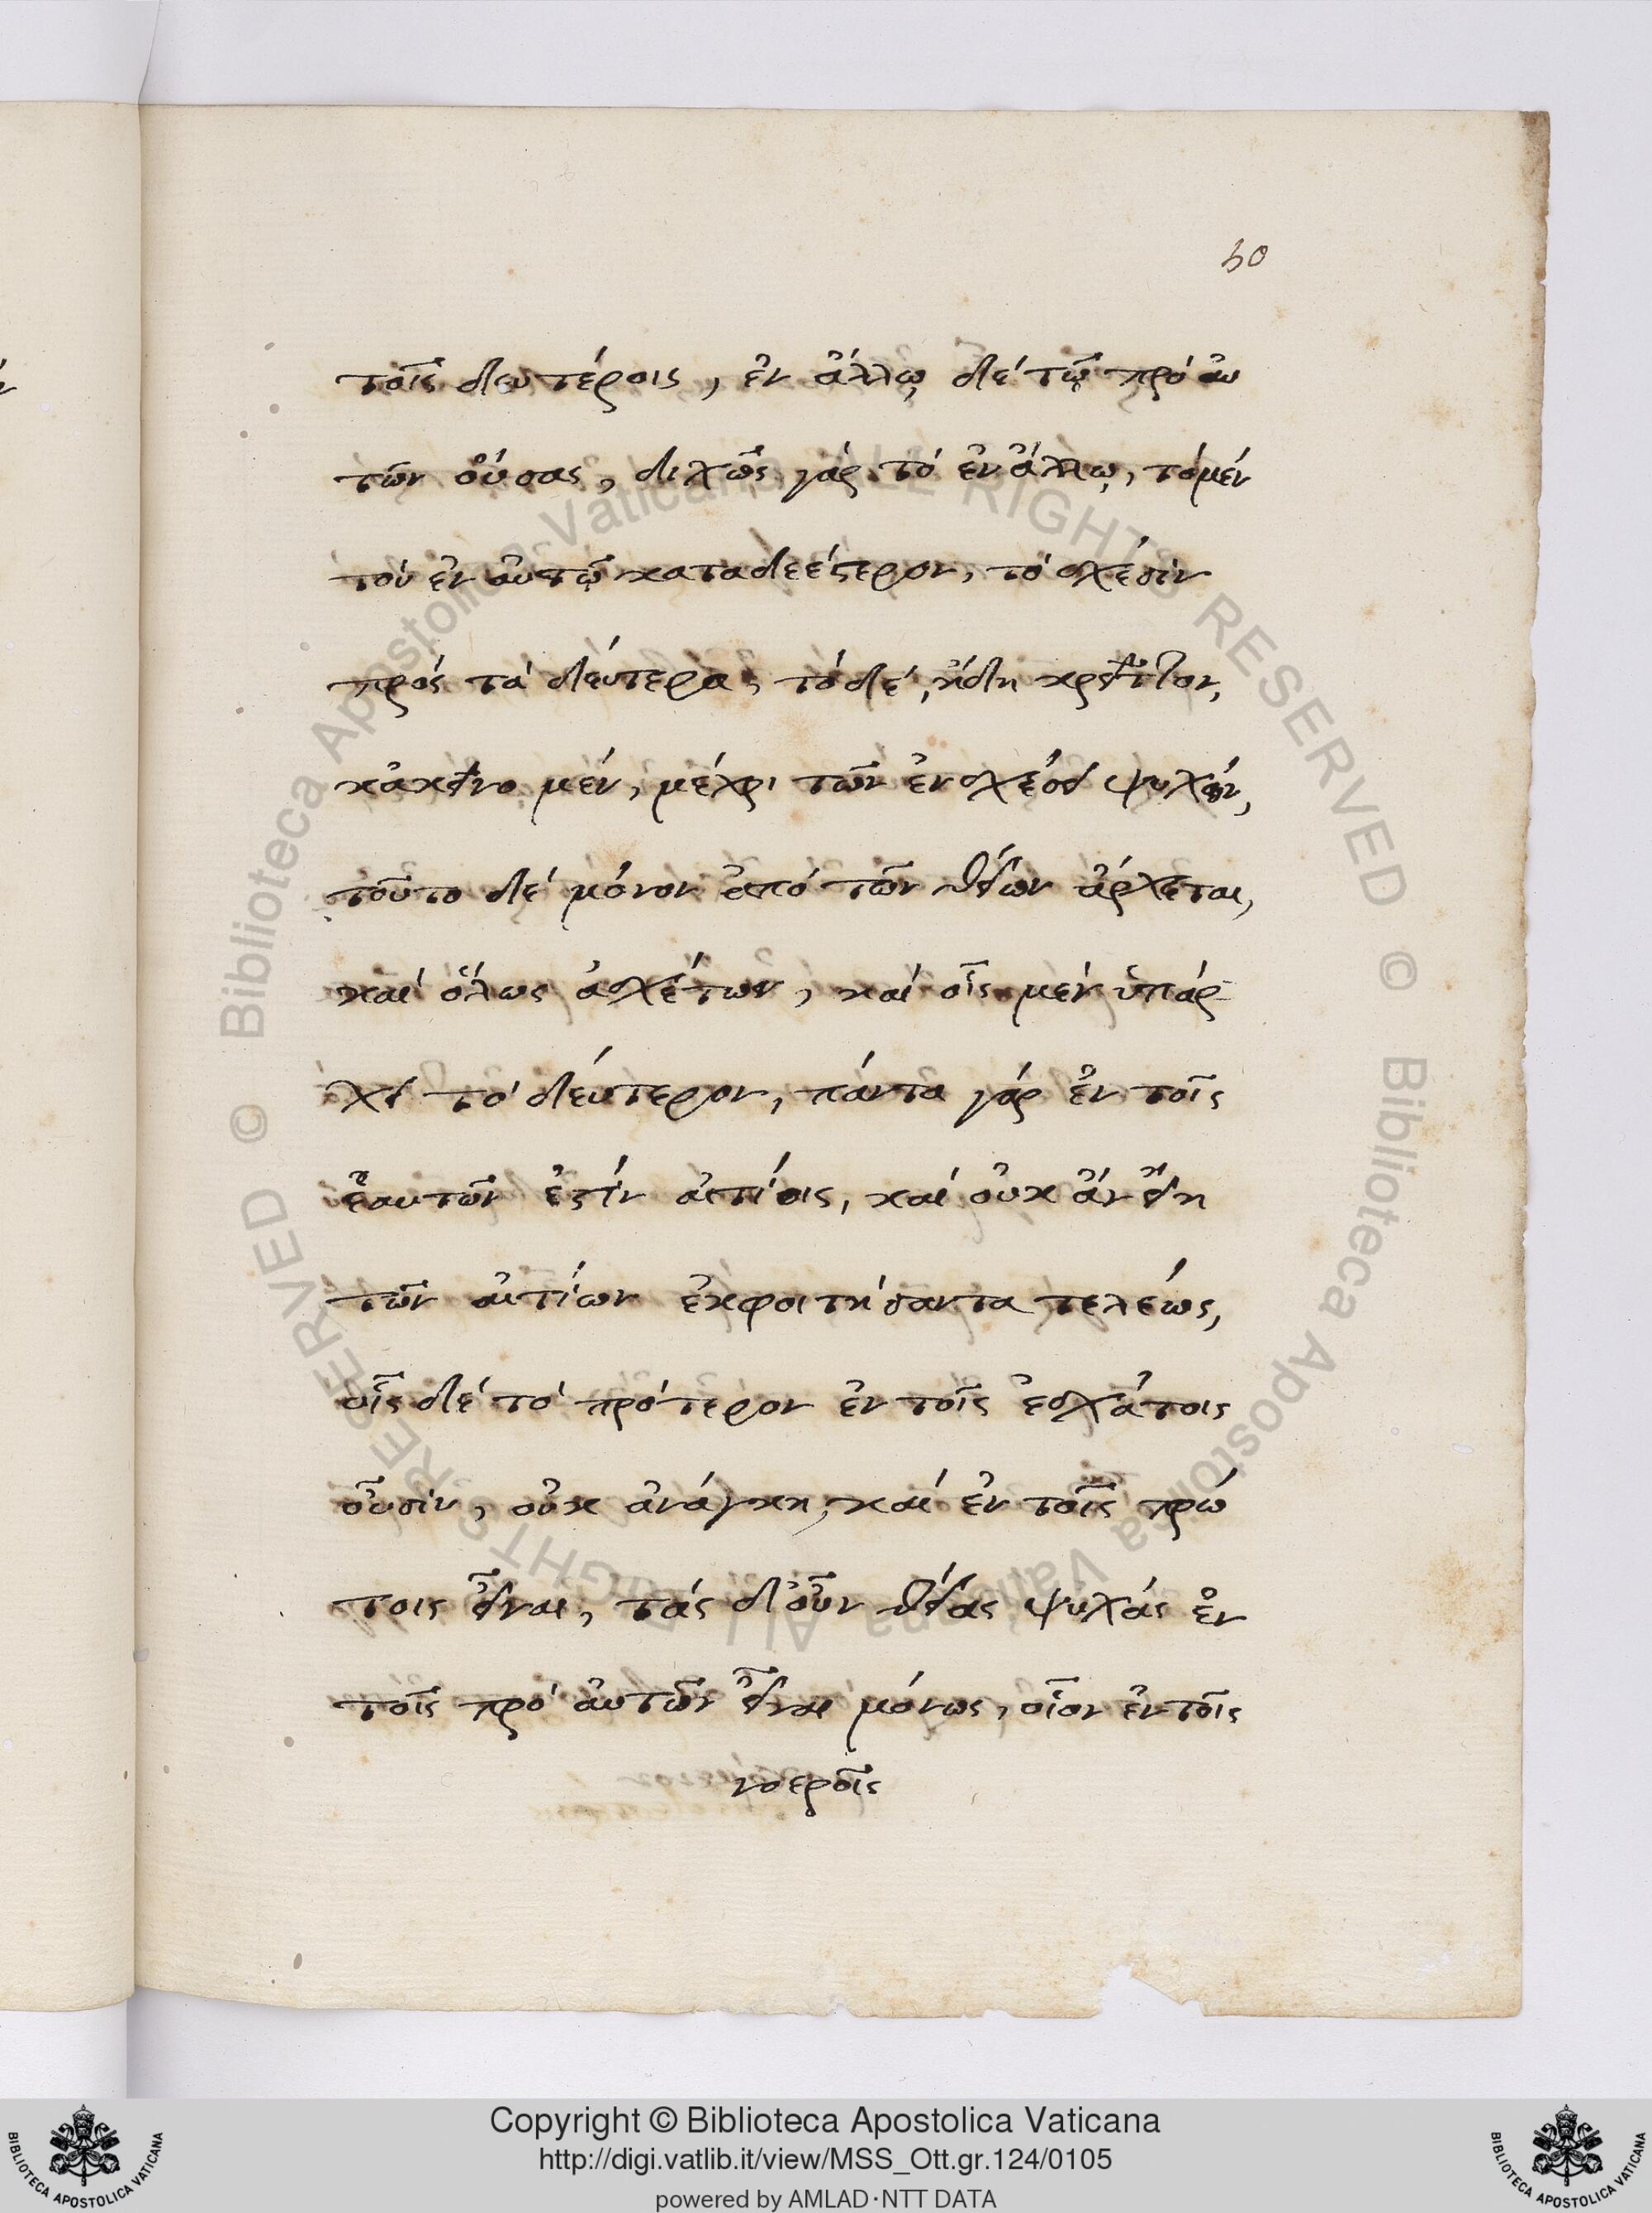 50
τοῖς δευτέροις, ἐν ἄλλῳ δὲ τῷ πρὸ αὐ
τῶν οὔσας, διχῶς γάρ τὸ ἐν ἄλλῳ, τὸ μὲν
τοῦ ἐν αὐτῷ καταδεέστερον, τὸ σχέσιν
πρὸς τὰ δεύτερα, τὸ δὲ, ἤδη κρεῖττον,
κἀκεῖνο μὲν, μέχρι τῶν ἐν σχέσει ψυχῶν,
τοῦτο δὲ μόνον ἀπὸ τῶν θείων ἄρχεται,
καὶ ὅλως ἀσχέτων, καὶ οἷς μὲν ὑπάρ-
χει τὸ δεύτερον, πάντα γάρ ἐν τοῖς
ἑαυτῶν ἐστὶν αἰτίοις, καὶ οὐκ ἂν εἴη
τῶν αἰτίων ἐκφοιτήσαντα τελέως,
οἷς δὲ τὸ πρότερον ἐν τοῖς ἐσχάτοις
οὖσιν, οὐκ ἀνάγκη, καὶ ἐν τοῖς πρώ
τοις εἶναι, τὰς δ' οὖν θείας ψυχὰς ἐν
τοῖς πρὸ αὐτῶν εἶναι μόνως, οἷον ἐν τοῖς
νοεροῖς
Copyright © Biblioteca Apostolica Vaticana
http://digi.vatlib.it/view/MSS_Ott.gr.124/0105
powered by AMLAD·NTT DATA
BIBLIOTECA APOSTOLICA VATICANA
BIBLIOTECA APOSTOLICA VATICANA
© Biblioteca Apostolica Vaticana ALL RIGHTS RESERVED
© Biblioteca Apostolica Vaticana ALL RIGHTS RESERVED